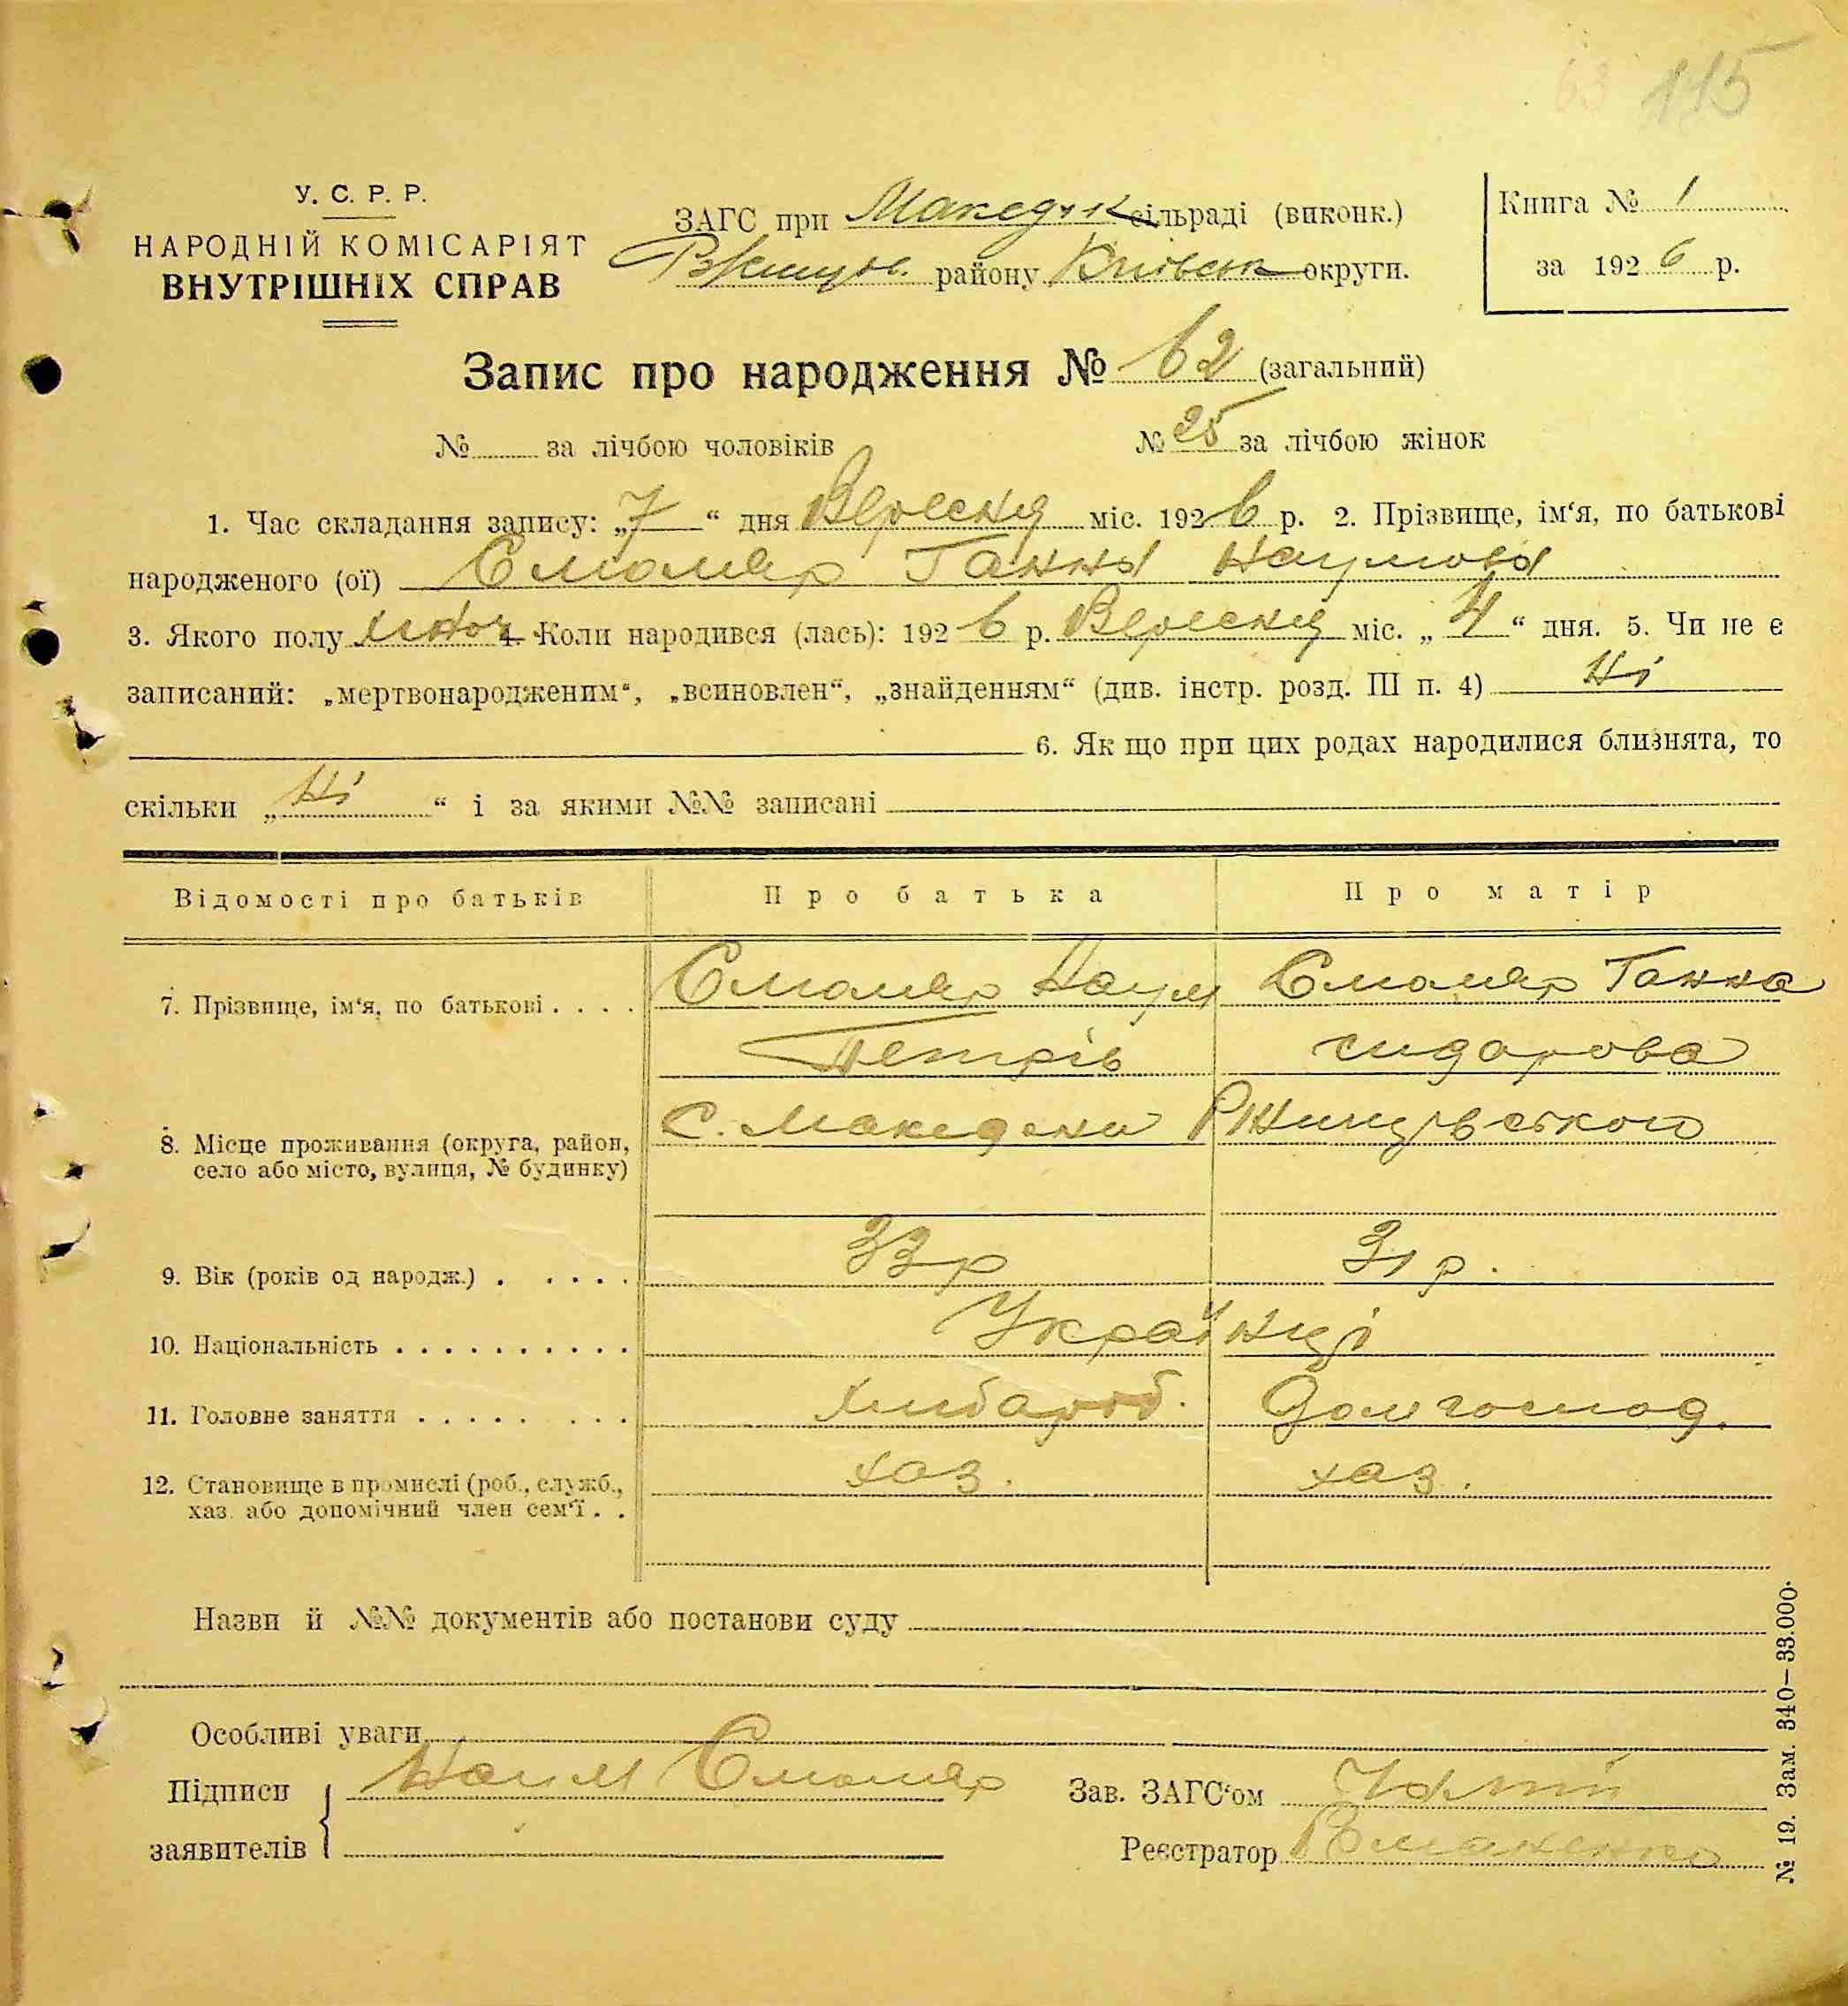 63 115
У. С. Р. Р.
НАРОДНІЙ КОМІСАРІЯТ
ВНУТРІШНІХ СПРАВ
ЗАГС при Македон сільраді (виконк.)
Ржищів. району Київськ округи.
Книга № 1
за 1926 р.
Запис про народження № 62 (загальний)
№ за лічбою чоловіків № 25 за лічбою жінок
1. Час складання запису: „7“ дня Вересня міс. 1926 р. 2. Прізвище, ім‘я, по батькові
народженого (ої) Смоляр Ганна Наумова
3. Якого полу жіноч 4. Коли народився (лась): 1926 р. Вересня міс. „4“ дня. 5. Чи не є
записаний: „мертвонародженим“, „всиновлен“, „знайденням“ (див. інстр. розд. III п. 4) Ні
6. Як що при цих родах народилися близнята, то
скільки „Ні“ і за якими №№ записані
Відомості про батьків Про батька Про матір
7. Прізвище, ім‘я, по батькові . . . . Смоляр Наум Смоляр Ганна
Петрів сидорова
8. Місце проживання (округа, район, С. Македони Ржищівського
село або місто, вулиця, № будинку)
9. Вік (років од народж.) . . . . . 33 р 31 р.
10. Національність . . . . . . . . . . Українці
11. Головне заняття . . . . . . . . Хлібароб. Дом господ.
12. Становище в промислі (роб., служб., хаз. хаз.
хаз. або допомічний член сем‘ї . .
Назви й №№ документів або постанови суду
Особливі уваги
Підписи Наум Смоляр Зав. ЗАГС‘ом
заявителів Реєстратор
№ 19. Зам. 340—33.000.